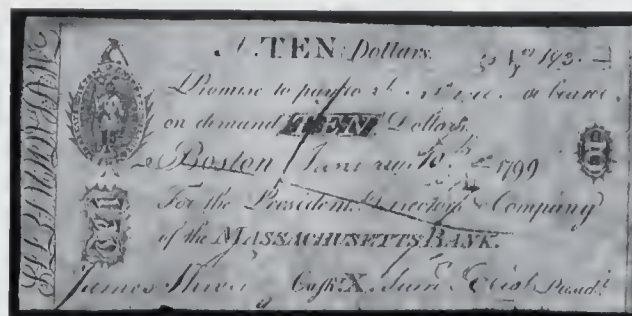 TEN Dollars. No. 193
Promise to pay to or bearer,
on demand TEN Dollars.
Boston January 10th 1799
For the President, Directors & Company
of the MASSACHUSETTS BANK.
James Cashr. X. Saml. Eliot Presdt.
TEN